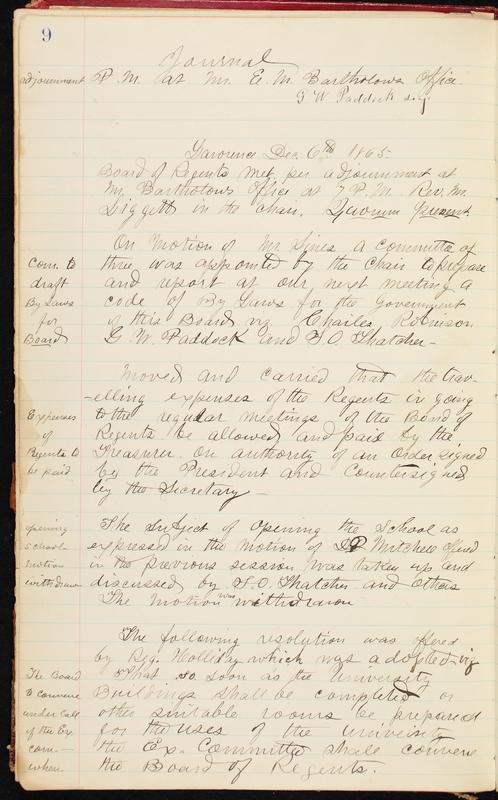 9
Journal
adjournment P. M. at Mr. E. M. Bartholows Office
G W Paddock
Lawrence Dec. 6th 1865.
Board of Regents met per adjournment at
Mr. Bartholows Office at 7 P.M. Rev. Mr.
Liggett in the chair. Quorum present
On Motion of Mr. Lines a committee of
com. to three was appointed by the Chair to prepare
draft and report at our next meeting a
By Laws code of By Laws for the Government
for of this Board viz Charles Robinson
Board G. W. Paddock and S O Thatcher -
Moved and Carried that the trav-
-elling expenses of the Regents in going
Expenses to the regular meetings of the Board of
of Regents be allowed and paid by the
Regents to Treasurer on authority of an Order signed
be paid by the President and Countersigned
by the Secretary -
opening The Subject of Opening the School as
school expressed in the Motion of J P Mitchell offered
motion in the previous session was taken up and
withdrawn discussed by S. O. Thatcher and others
The Motion was withdrawn
The following resolution was offered
by Reg. Holliday which was adopted viz
The Board That so soon as the University
to convene Buildings shall be completed or
under call other suitable rooms be prepared
of the Ex. for the uses of the University
com- the Ex. Committee shall convene
when the Board of Regents.